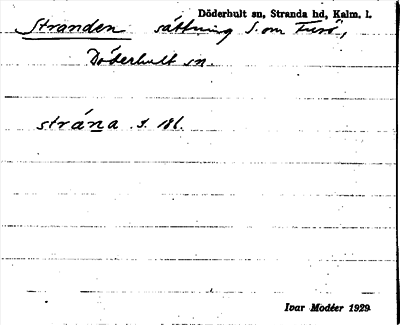 Döderhult sn, Stranda hd, Kalm. l.
Stranden sättning S. om Furö,
Döderhult sn.
strána s. 186.
Ivar Modéer 1929